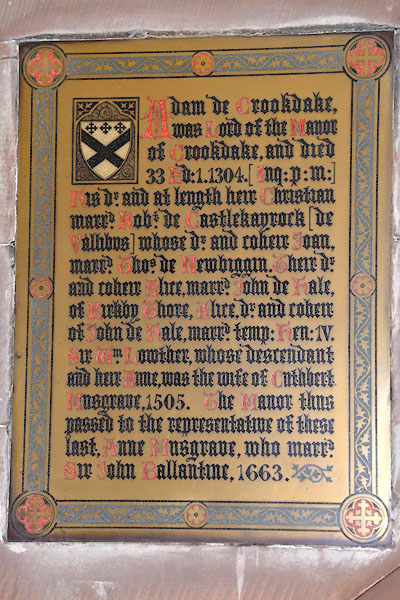 Adam de Crookdake,
was Lord of the Manor
of Crookdake, and died
33 Ed:1.1304.[Inq:p:m:]
His dr. and at length heir Christian
marrd. Robt. de Castlekayrock [de
Vallibus] whose dr. and coheir Joan,
marrd. Thos. de Newbiggin. Their dr.
and coheir Alice, marrd. John de Hale,
of Kirkby Thore, Alice, dr. and coheir
of John de Hale, marrd. temp: Hen: IV.
Sir Wm. Lowther, whose descendant
and heir Anne, was the wife of Cuthbert
Musgrave, 1505. The Manor thus
passed to the representative of these
last, Anne Musgrave, who marrd.
Sir John Ballantine, 1663.